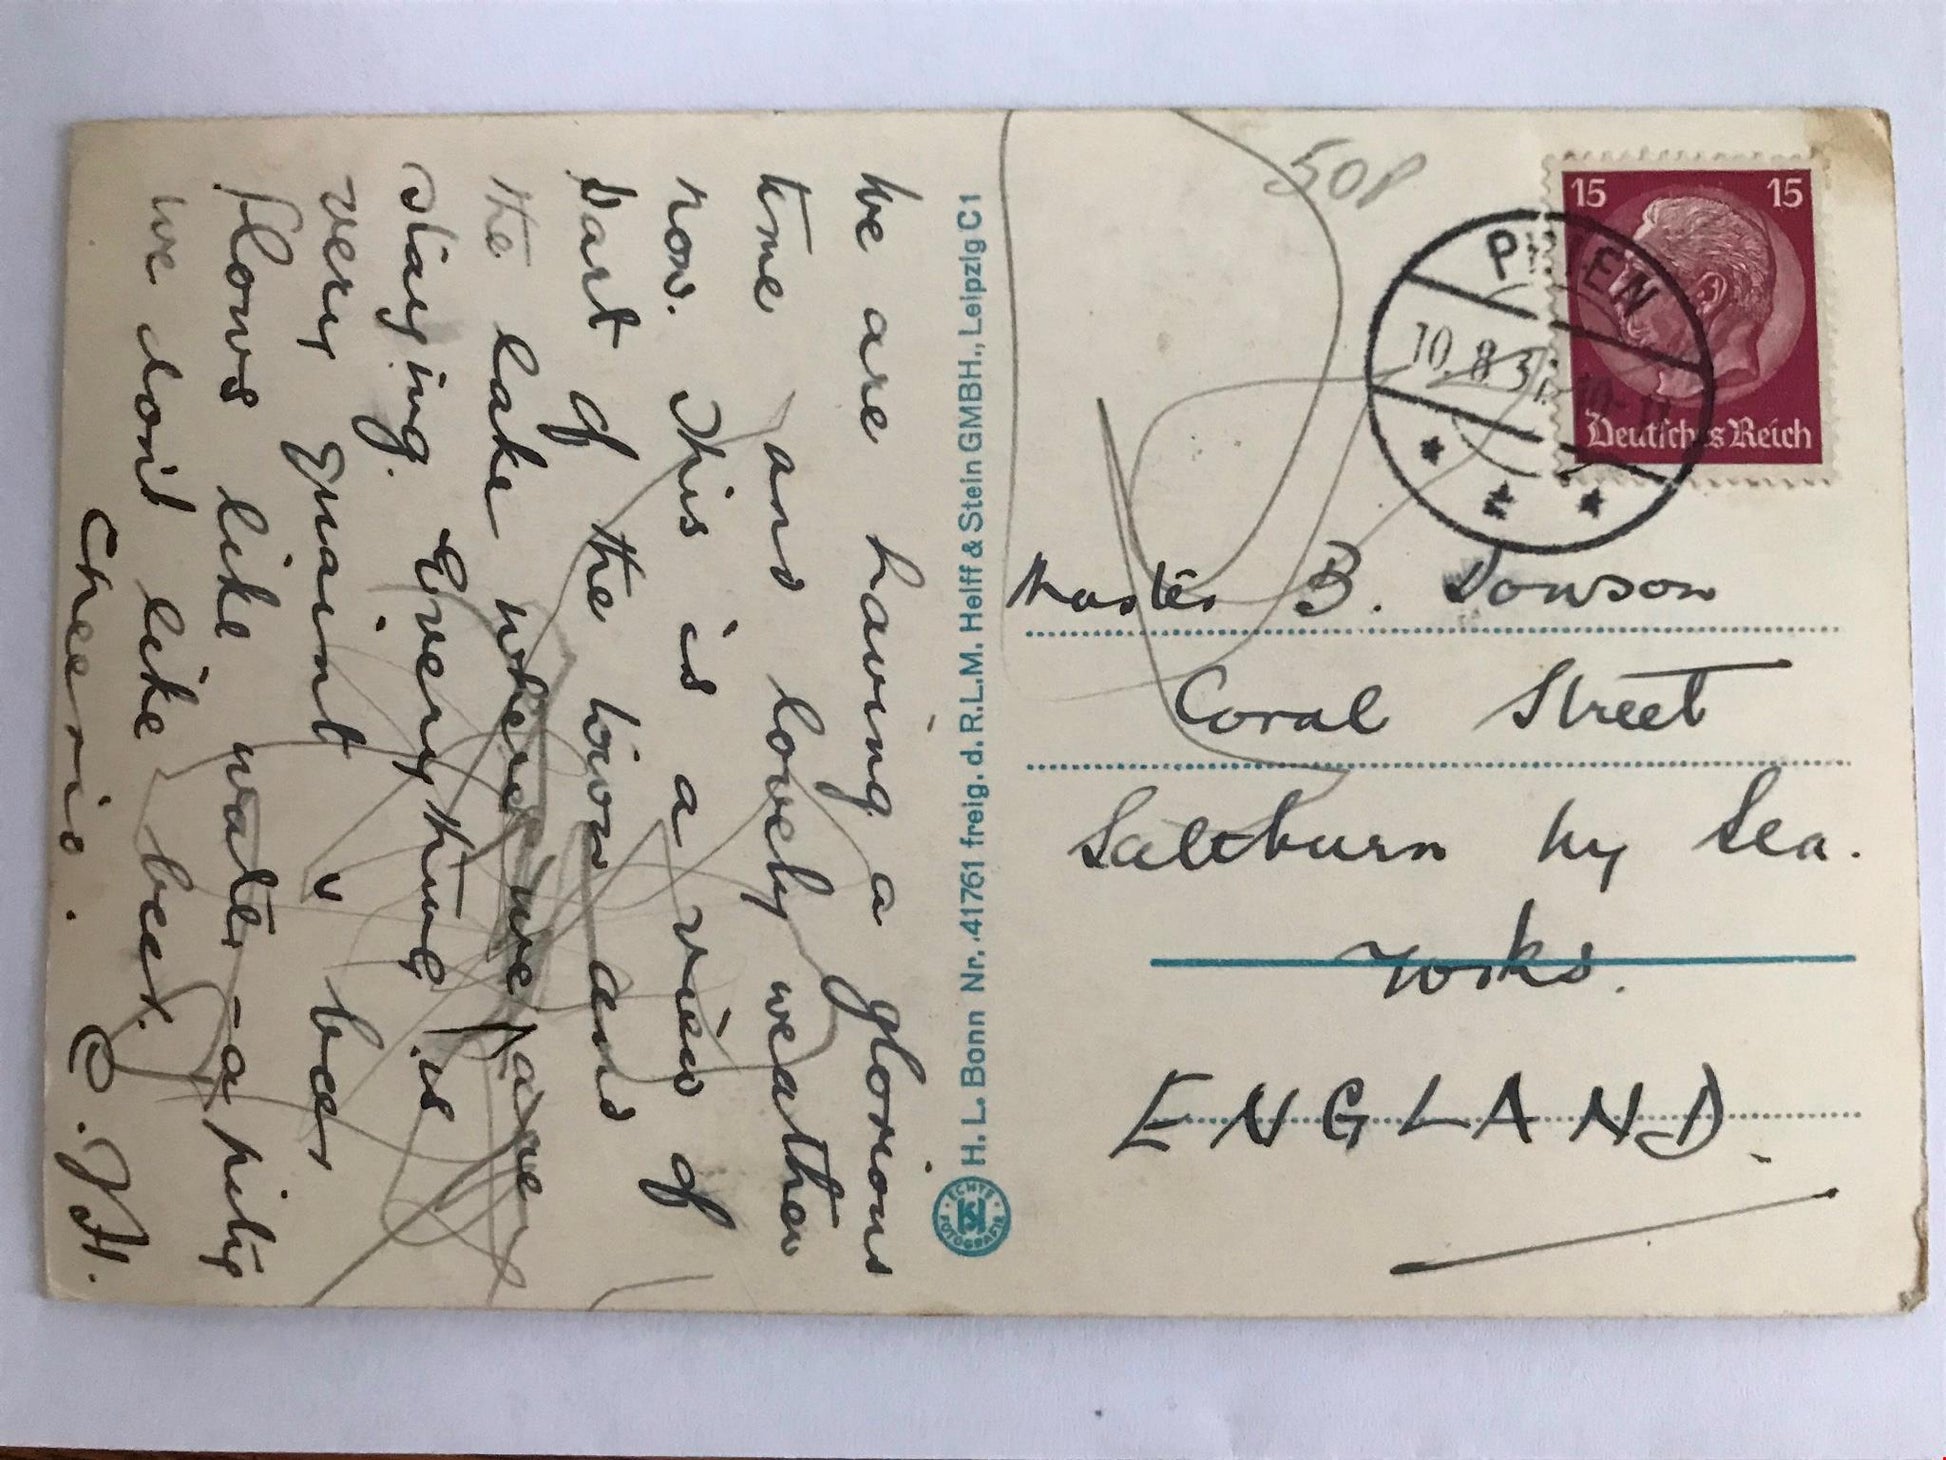 We are having a glorious
time and lovely weather
now. This is a view of
part of the town and
the lake where we are
staying. Everything is
very quaint & beer
flows like water - a pity
we don't like beer.
Cheerio. C. H.
H. L. Bonn Nr. 41761 freig. d. R.L.M. Helff & Stein GMBH., Leipzig C1
ECHTE FOTOGRAFIE
50P
15 15
Deutsches Reich
10. 8. 3
Master B. Dowson
Coral Street
Saltburn by Sea.
Yorks.
ENGLAND.